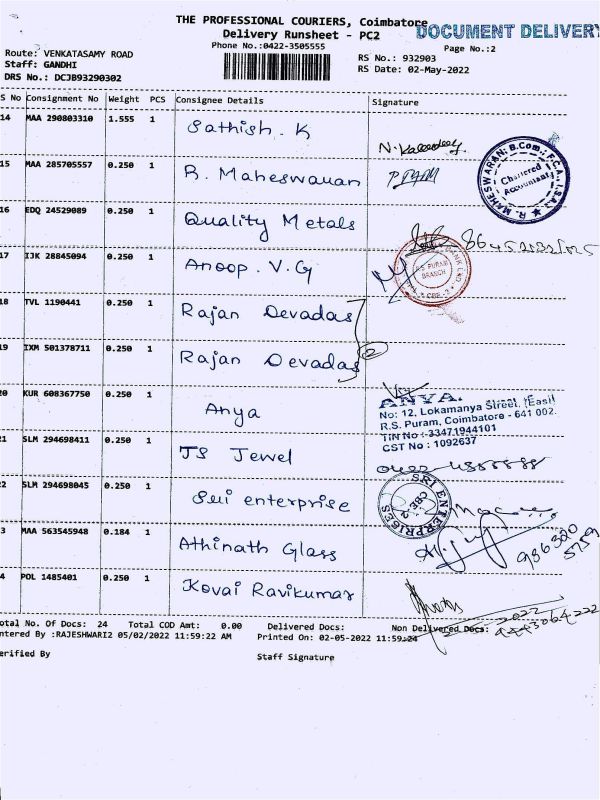 THE PROFESSIONAL COURIERS, Coimbatore
DOCUMENT DELIVERY
Delivery Runsheet - PC2
Phone No.:0422-3505555
Page No.:2
Route: VENKATASAMY ROAD
RS No.: 932903
Staff: GANDHI
RS Date: 02-May-2022
DRS No.: DCJB93290302
S No Consignment No Weight PCS Consignee Details Signature
14 MAA 290803310 1.555 1 Sathish. K
15 MAA 285705557 0.250 1 R. Maheswaran
R. MAHESWARAN, B.Com., F.C.A.
Chartered
Accountant
16 EDQ 24529089 0.250 1 Quality Metals
17 IJK 28845094 0.250 1 Anoop. V. G
R.S PURAM
BRANCH
CBE-2
18 TVL 1190441 0.250 1 Rajan Devadas
19 IXM 501378711 0.250 1 Rajan Devadas
2
20 KUR 608367750 0.250 1 Anya
ANYA.
No: 12, Lokamanya Street, (East)
R.S. Puram, Coimbatore - 641 002.
TIN No :-33471944101
CST No : 1092637
21 SLM 294698411 0.250 1 JS Jewel
22 SLM 294698045 0.250 1 Sri enterprise
SRI ENTERPRISES
CBE-2
3 MAA 563545948 0.184 1 Athinath Glass
4 POL 1485401 0.250 1 Kovai Ravikumar
otal No. Of Docs: 24 Total COD Amt: 0.00 Delivered Docs: Non Delivered Docs:
ntered By :RAJESHWARI2 05/02/2022 11:59:22 AM Printed On: 02-05-2022 11:59:24
erified By Staff Signature